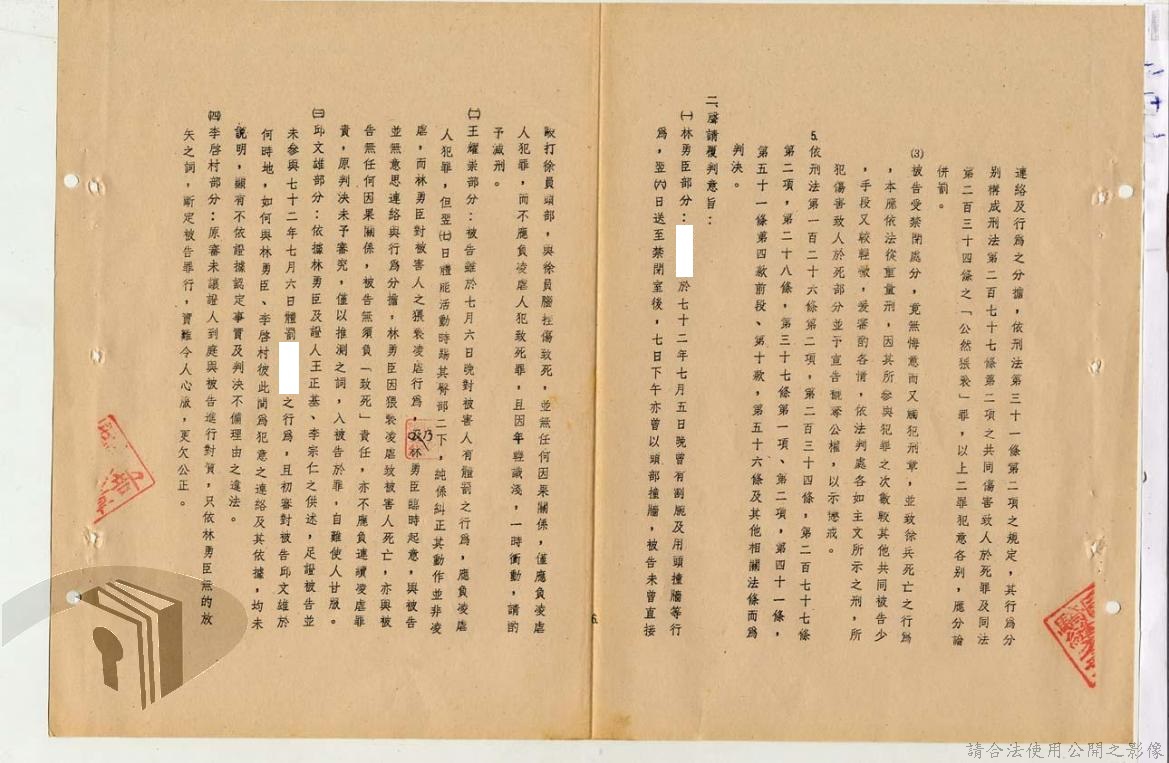 連絡及行為之分擔，依刑法第三十一條第二項之規定，其行為分
別構成刑法第二百七十七條第二項之共同傷害致人於死罪及同法
第二百三十四條之「公然猥褻」罪，以上二罪犯意各別，應分論
併罰。
⑶被告受禁閉處分，竟無悔意而又觸犯刑章，並致徐兵死亡之行為
，本應依法從重量刑，因其所參與犯罪之次數較其他共同被告少
，手段又較輕微，爰審酌各情，依法判處各如主文所示之刑，所
犯傷害致人於死部分並予宣告褫奪公權，以示懲戒。
5.依刑法第一百二十六條第二項，第二百三十四條，第二百七十七條
第二項，第二十八條，第三十七條第一項、第二項，第四十一條，
第五十一條第四款前段、第十款，第五十六條及其他相關法條而為
判決。
二、聲請覆判意旨：
㈠林勇臣部分：於七十二年七月五日晚曾有割腕及用頭撞牆等行
為，翌㈥日送至禁閉室後，七日下午亦曾以頭部撞牆，被告未曾直接
6.
毆打徐員頭部，與徐員腦挫傷致死，並無任何因果關係，僅應負凌虐
人犯罪，而不應負凌虐人犯致死罪，且因年輕識淺，一時衝動，請酌
予減刑。
㈡王耀崇部分：被告雖於七月六日晚對被害人有體罰之行為，應負凌虐
人犯罪，但翌㈦日體能活動時踢其臀部二下，純係糾正其動作並非凌
虐，而林勇臣對被害人之猥褻凌虐行為，林勇臣臨時起意，與被告
並無意思連絡與行為分擔，林勇臣因猥褻凌虐致被害人死亡，亦與被
告無任何因果關係，被告無須負「致死」責任，亦不應負連續凌虐罪
責，原判決未予審究，僅以推測之詞，入被告於罪，自難使人甘服。
㈢邱文雄部分：依據林勇臣及證人王正基、李宗仁之供述，足證被告並
未參與七十二年七月六日體罰之行為，且初審對被告邱文雄於
何時地，如何與林勇臣、李啓村彼此間為犯意之連絡及其依據，均未
說明，顯有不依證據認定事實及判決不備理由之違法。
㈣李啓村部分：原審未讓證人到庭與被告進行對質，只依林勇臣無的放
矢之詞，斷定被告罪行，實難令人心服，更欠公正。
請合法使用公開之影像